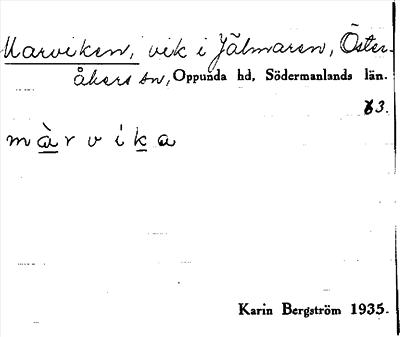 Marviken, vik i Jälmaren, Öster-
åkers sn, Oppunda hd, Södermanlands län.
63.
m à r v i k a
Karin Bergström 1935.